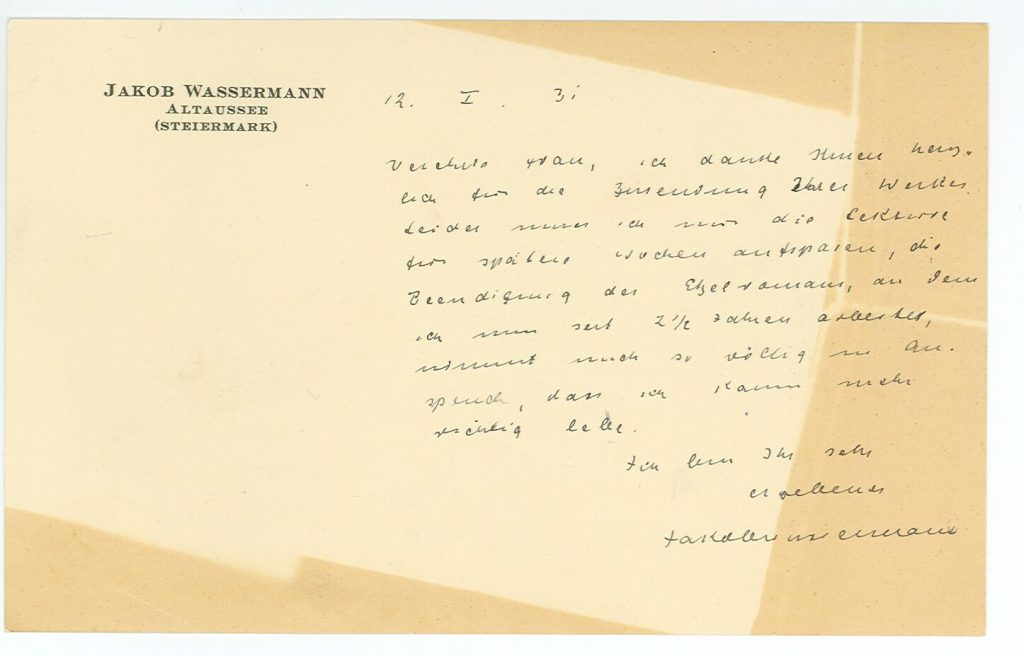 JAKOB WASSERMANN
ALTAUSSEE
(STEIERMARK)
12. I. 31
Verehrte Frau, ich danke Ihnen herz-
lich für die Zusendung Ihres Werkes.
Leider muss ich mir die Lektüre
für spätere Wochen aufsparen, die
Beendigung des Etzelromans, an dem
ich nun seit 2½ Jahren arbeite,
nimmt mich so völlig in An-
spruch, dass ich kaum mehr
richtig lebe.
Ich bin Ihr sehr
ergebener
Jakob Wassermann